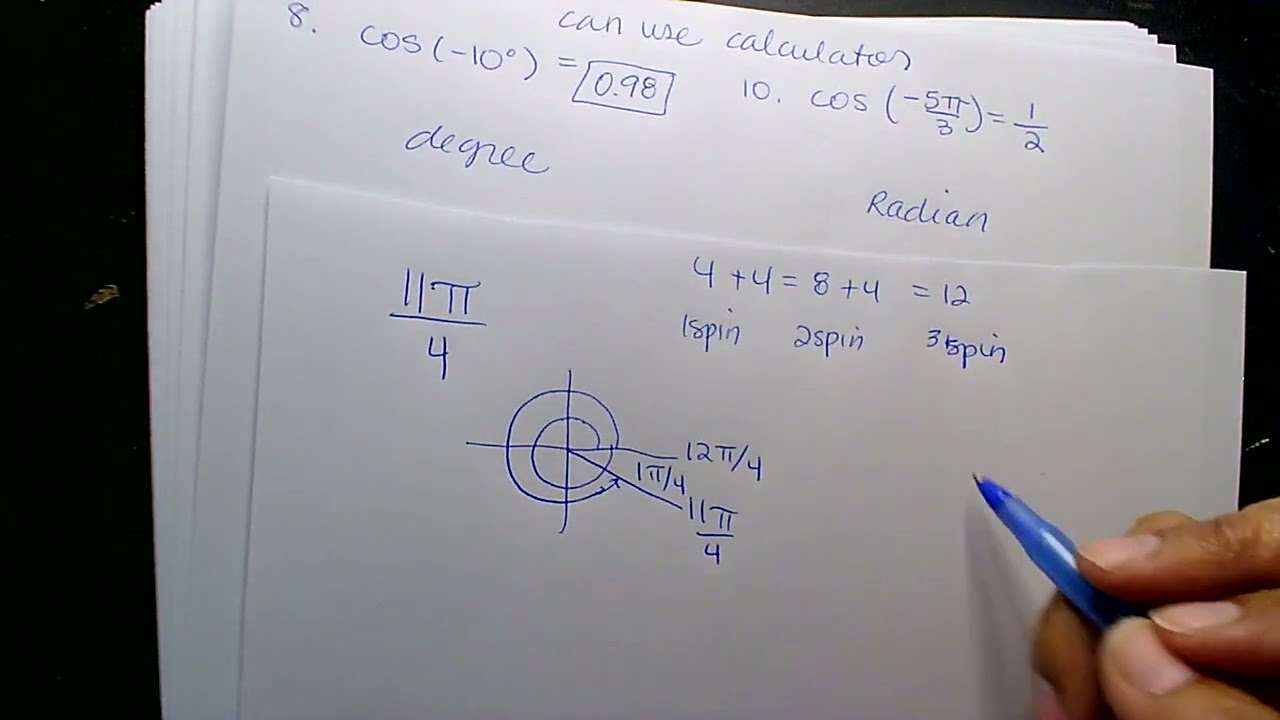 can use calculator
8. cos(-10°) = 0.98
10. cos(-5π/3) = 1/2
degree
Radian
11π/4
4 + 4 = 8 + 4 = 12
1spin 2spin 3spin
12π/4
1π/4
11π/4